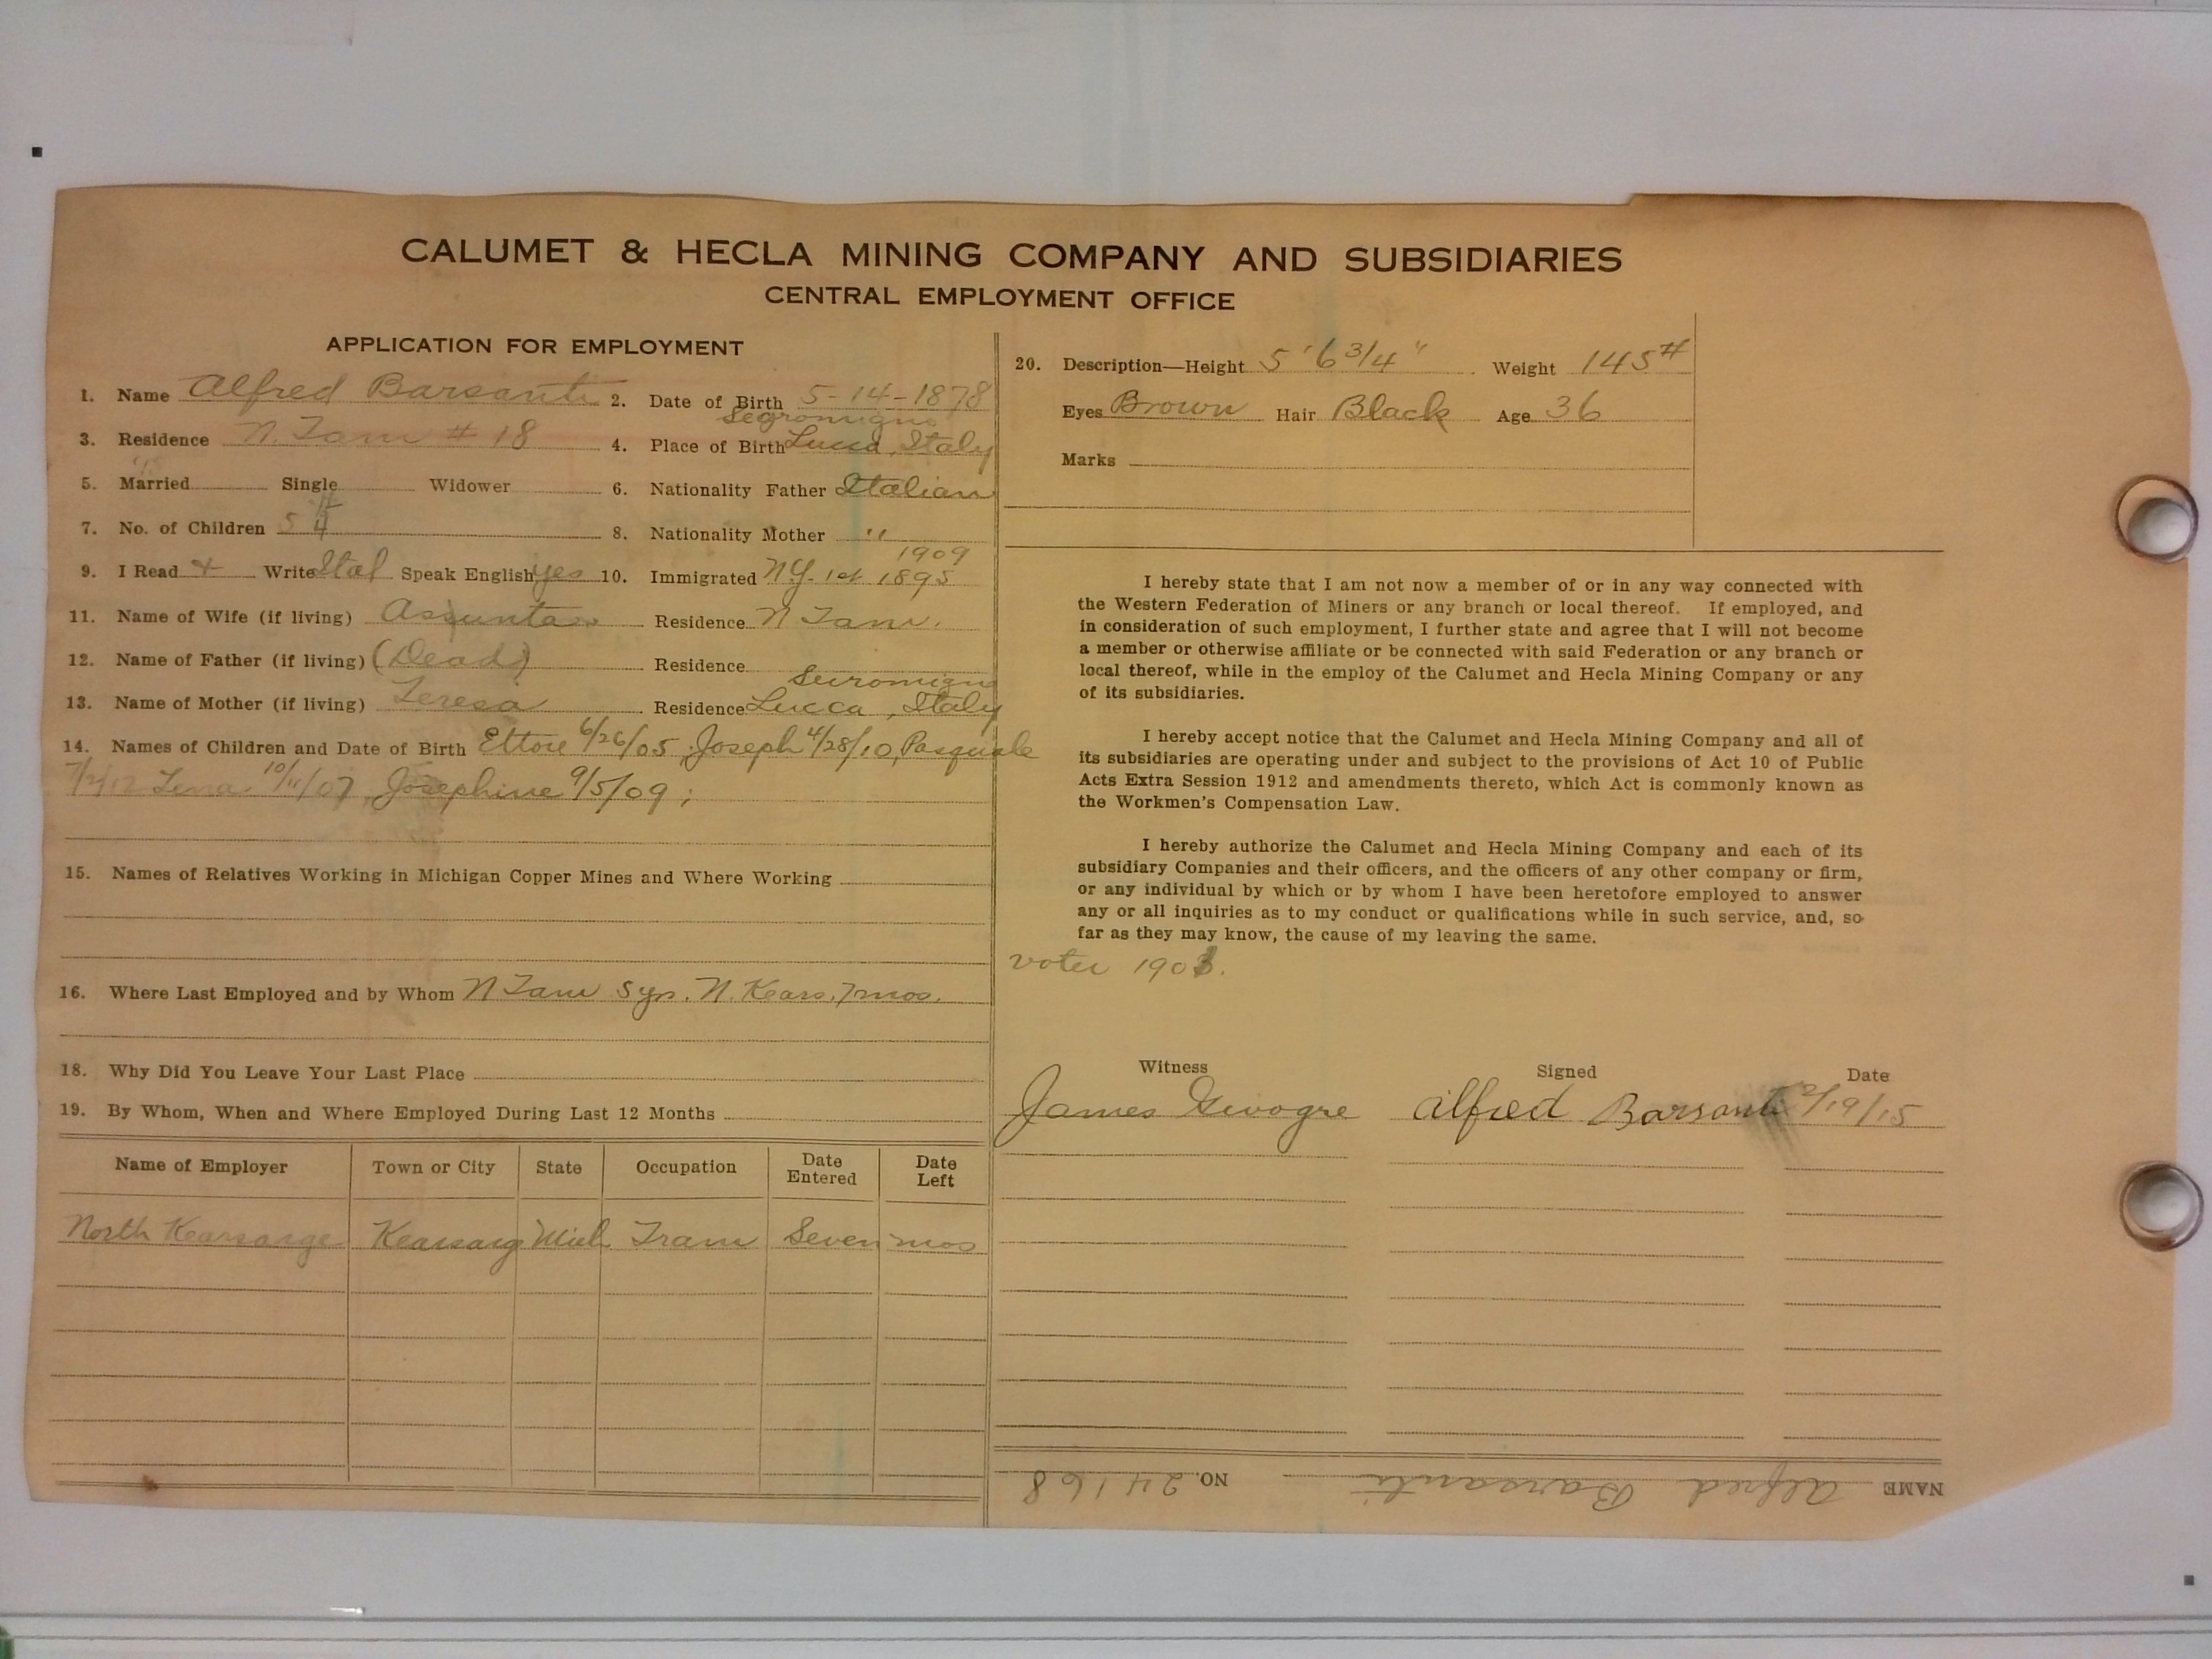 CALUMET & HECLA MINING COMPANY AND SUBSIDIARIES
CENTRAL EMPLOYMENT OFFICE
APPLICATION FOR EMPLOYMENT
1. Name Alfred Barsanti 2. Date of Birth 5-14-1878
Segromigno
3. Residence N. Tam # 18 4. Place of Birth Lucca, Italy
5. Married Single Widower 6. Nationality Father Italian
7. No. of Children 5 4 8. Nationality Mother "
1909
9. I Read + Write Ital Speak English yes 10. Immigrated N.Y. 1st 1895
11. Name of Wife (if living) Assunta Residence N Tam.
12. Name of Father (if living) (Dead) Residence
13. Name of Mother (if living) Teresa Residence Lucca, Italy
14. Names of Children and Date of Birth Ettore 6/26/05, Joseph 4/28/10, Pasquale
Lena 10/11/07, Josephine 9/5/09;
15. Names of Relatives Working in Michigan Copper Mines and Where Working
16. Where Last Employed and by Whom N Tam 5 yrs. N. Kears. 7 mos.
18. Why Did You Leave Your Last Place
19. By Whom, When and Where Employed During Last 12 Months
Name of Employer Town or City State Occupation Date Entered Date Left
North Kearsarge Kearsarg Mich Tram Seven mos
20. Description—Height 5' 6 3/4" Weight 145#
Eyes Brown Hair Black Age 36
Marks
I hereby state that I am not now a member of or in any way connected with
the Western Federation of Miners or any branch or local thereof. If employed, and
in consideration of such employment, I further state and agree that I will not become
a member or otherwise affiliate or be connected with said Federation or any branch or
local thereof, while in the employ of the Calumet and Hecla Mining Company or any
of its subsidiaries.
I hereby accept notice that the Calumet and Hecla Mining Company and all of
its subsidiaries are operating under and subject to the provisions of Act 10 of Public
Acts Extra Session 1912 and amendments thereto, which Act is commonly known as
the Workmen's Compensation Law.
I hereby authorize the Calumet and Hecla Mining Company and each of its
subsidiary Companies and their officers, and the officers of any other company or firm,
or any individual by which or by whom I have been heretofore employed to answer
any or all inquiries as to my conduct or qualifications while in such service, and, so
far as they may know, the cause of my leaving the same.
voter
Witness Signed Date
James Alfred Barsanti 2/19/15
NAME Alfred Barsanti NO. 24168